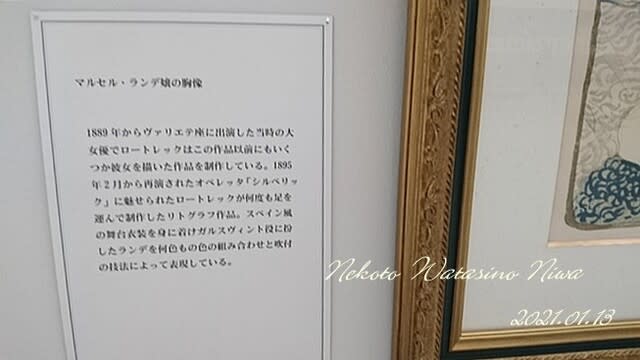 マルセル・ランデ嬢の胸像
1889年からヴァリエテ座に出演した当時の大
女優でロートレックはこの作品以前にもいく
つか彼女を描いた作品を制作している。1895
年2月から再演されたオペレッタ「シルペリッ
ク」に魅せられたロートレックが何度も足を
運んで制作したリトグラフ作品。スペイン風
の舞台衣装を身に着けガルスヴィント役に扮
したランデを何色もの色の組み合わせと吹付
の技法によって表現している。
Nekoto Watasino Niwa
2021.01.13